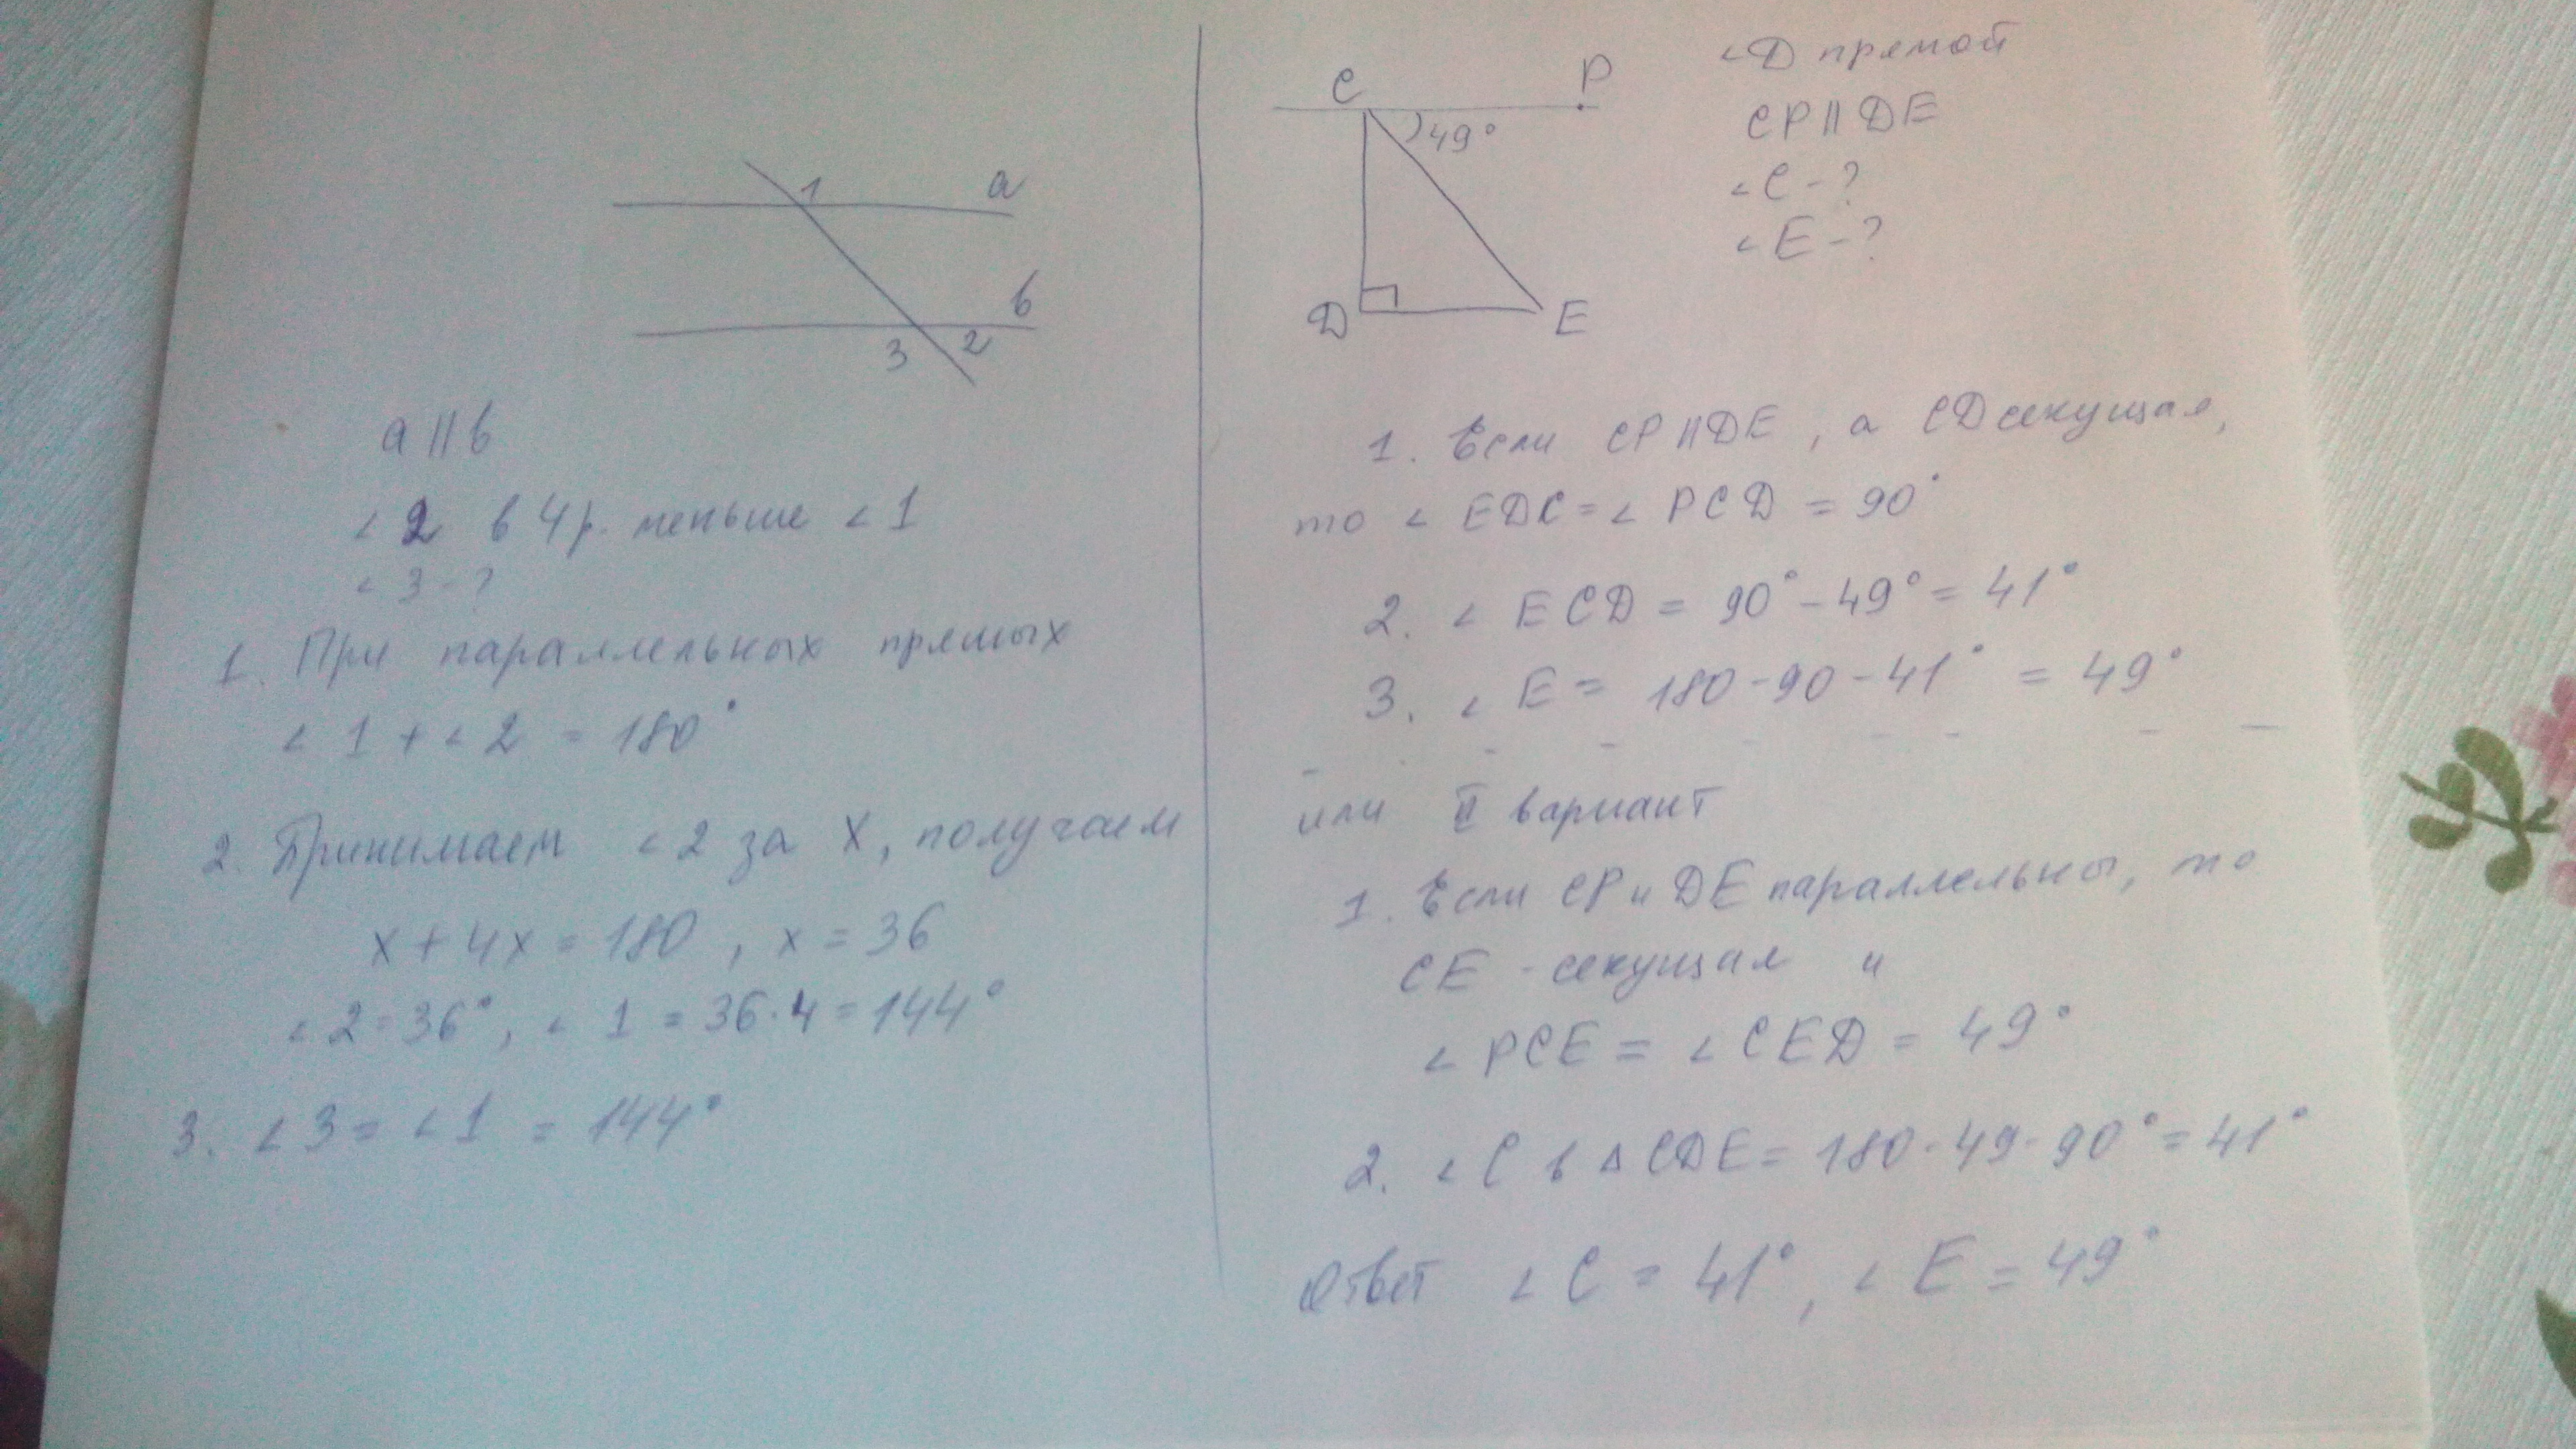 1
a
b
3 2
a || b
∠2 в 4 р. меньше ∠1
∠3 - ?
1. При параллельных прямых
∠1 + ∠2 = 180°
2. Принимаем ∠2 за X, получаем
x + 4x = 180, x = 36
∠2 = 36°, ∠1 = 36·4 = 144°
3. ∠3 = ∠1 = 144°
C P
49°
D E
∠D прямой
CP || DE
∠C - ?
∠E - ?
1. Если CP || DE, а CD секущая,
то ∠EDC = ∠PCD = 90°
2. ∠ECD = 90° - 49° = 41°
3. ∠E = 180 - 90 - 41° = 49°
или II вариант
1. Если CP и DE параллельны, то
CE - секущая и
∠PCE = ∠CED = 49°
2. ∠C в △CDE = 180 - 49 - 90° = 41°
Ответ ∠C = 41°, ∠E = 49°